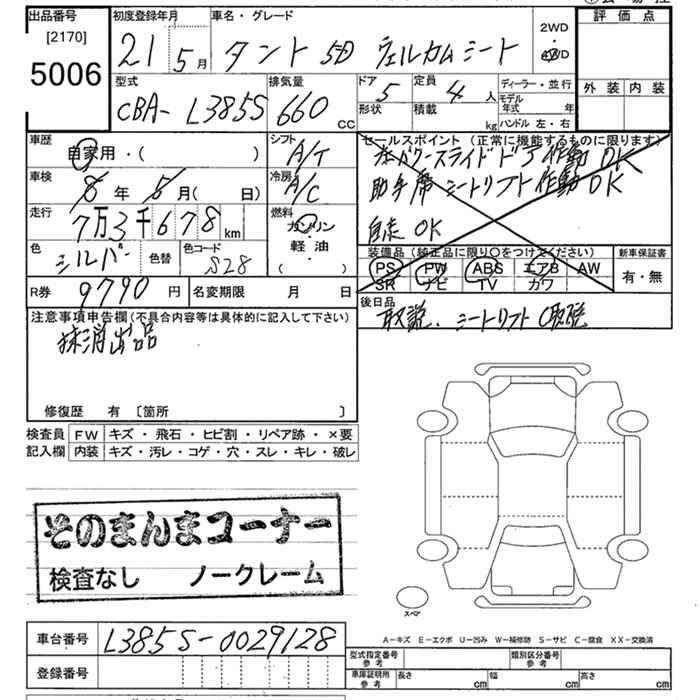 出品番号
[2170]
5006
初度登録年月
21 5月
車名・グレード
タント 5D ウェルカムシート
2WD
・
4WD
評価点
外装 内装
型式
CBA-L385S
排気量
660 CC
ドア
5
定員
4 人
形状
積載
kg
ディーラー・並行
モデル年式 年
ハンドル 左・右
車歴
自家用・( )
シフト
A/T
車検
8年 5月( 日)
冷房
A/C
走行
7万3千678 km
燃料
ガソリン
軽・油
( )
色
シルバー
色替
色コード
S28
R券
9790 円
名変期限 月 日
セールスポイント(正常に機能するものに限ります)
左パワースライドドア作動OK
助手席シートリフト作動OK
自走OK
装備品(純正品に限り〇をつけてください)
PS PW ABS エアB AW
SR ナビ TV カワ
新車保証書
有・無
後日品
取説、シートリフト取説
注意事項申告欄(不具合内容等は具体的に記入して下さい)
抹消出品
修復歴 有 〔箇所 〕
検査員記入欄
FW キズ・飛石・ヒビ割・リペア跡・×要
内装 キズ・汚レ・コゲ・穴・スレ・キレ・破レ
そのまんまコーナー
検査なし ノークレーム
スペア
車台番号
L385S-0029128
登録番号
A-キズ E-エクボ U-凹み W-補修跡 S-サビ C-腐食 XX-交換済
型式指定番号
参考
類別区分番号
参考
車庫証明用
参考
長さ cm 幅 cm 高さ cm